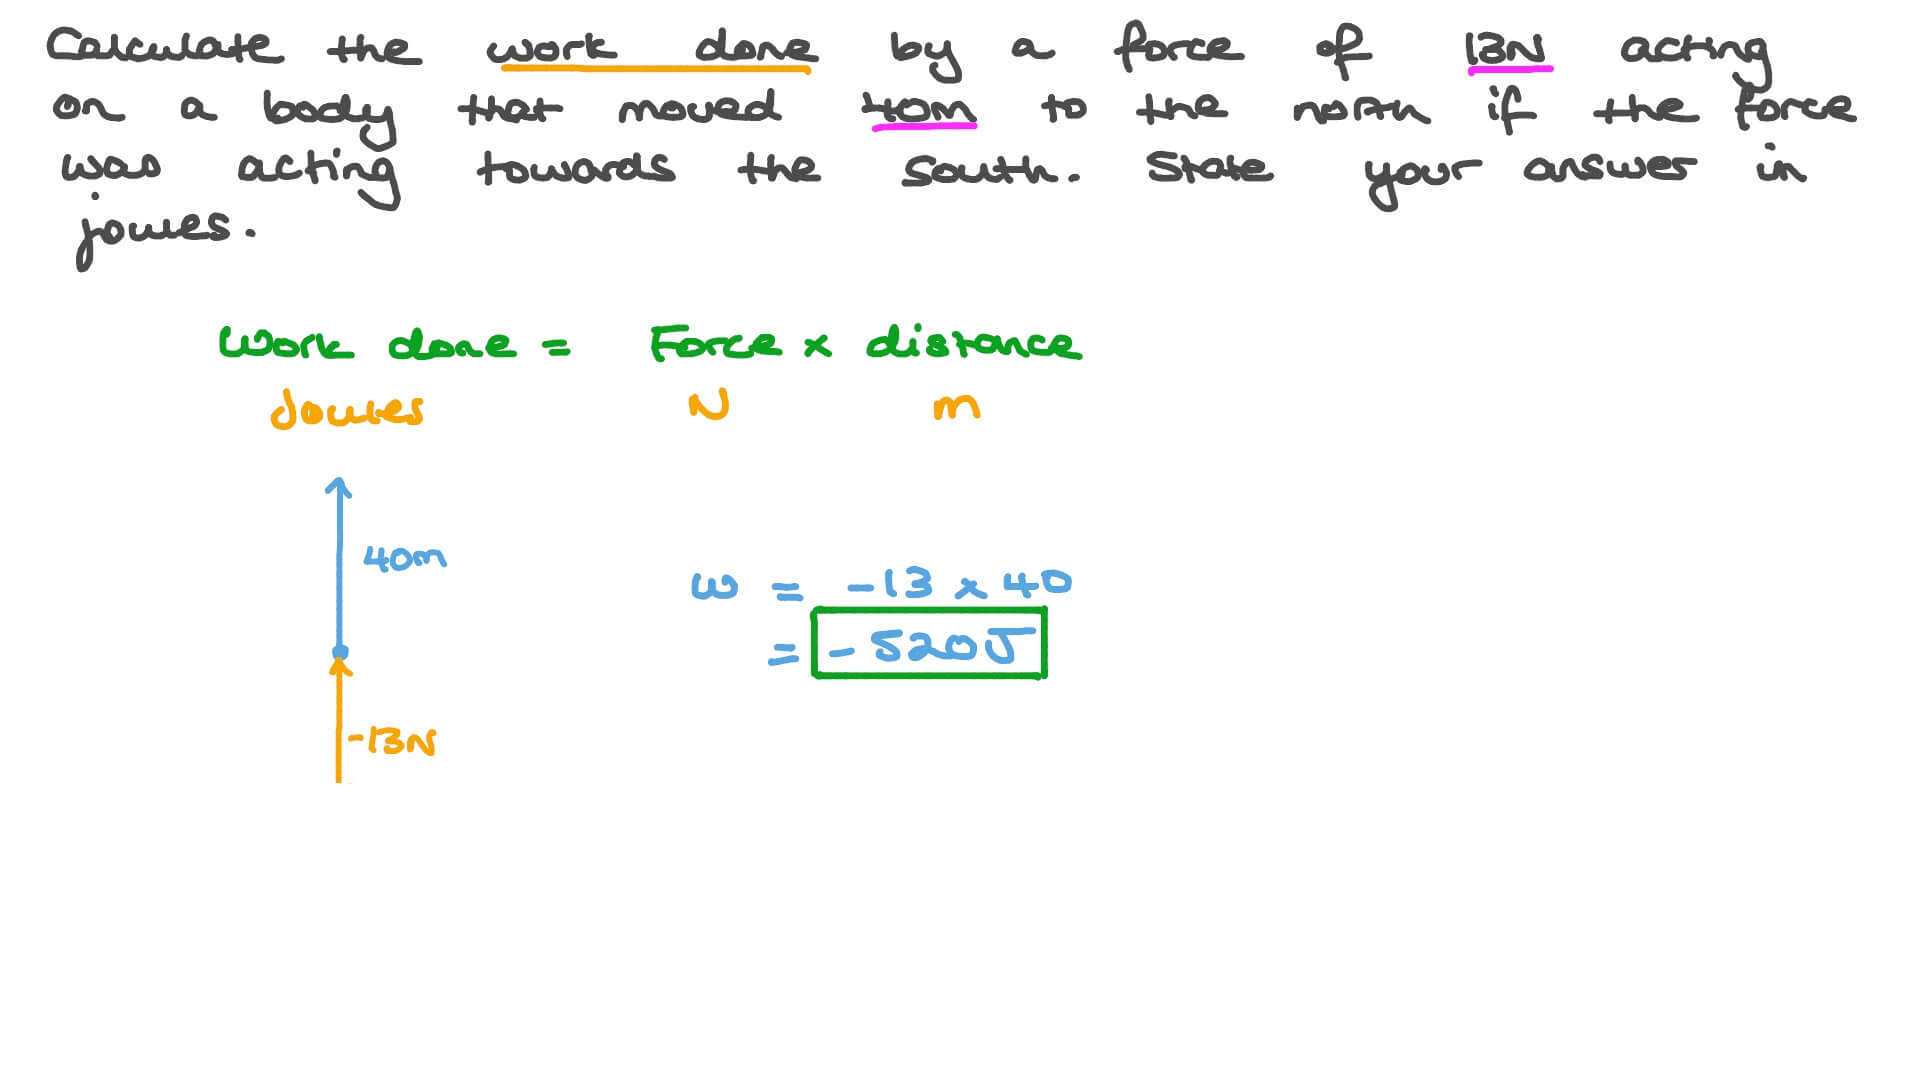 Calculate the work done by a force of 13N acting
on a body that moved 40m to the north if the force
was acting towards the south. State your answer in
joules.
Work done = Force x distance
Joules N m
40m
W = -13 x 40
= -520J
-13N